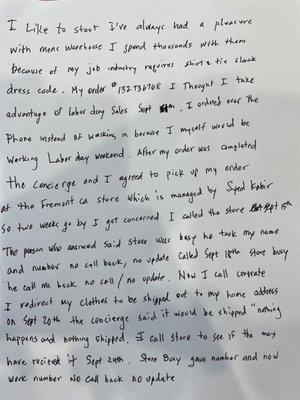 I Like to start I've always had a pleasure
with mens warehouse I spend thousands with them
Because of my job industry requires shirt & tie slack
dress code. My order #132736708 I Thought I take
advantage of labor day Sales Sept. I ordered over the
Phone instead of walking in because I myself would be
working Labor day weekend. After my order was completed
the concierge and I agreed to pick up my order
at the Fremont ca store which is managed by Syed Kabir
So two weeks go by I get concerned I called the store Sept 15th
The person who answered said store was busy he took my name
and number no call back, no update called Sept 18th store busy
he call me back no call / no update. Now I call corporate
I redirect my clothes to be shipped out to my home address
on Sept 20th the concierge said it would be shipped "nothing
happens and nothing shipped. I call store to see if the may
have recieved it Sept 24th. Store Busy gave number and now
work number no call back no update